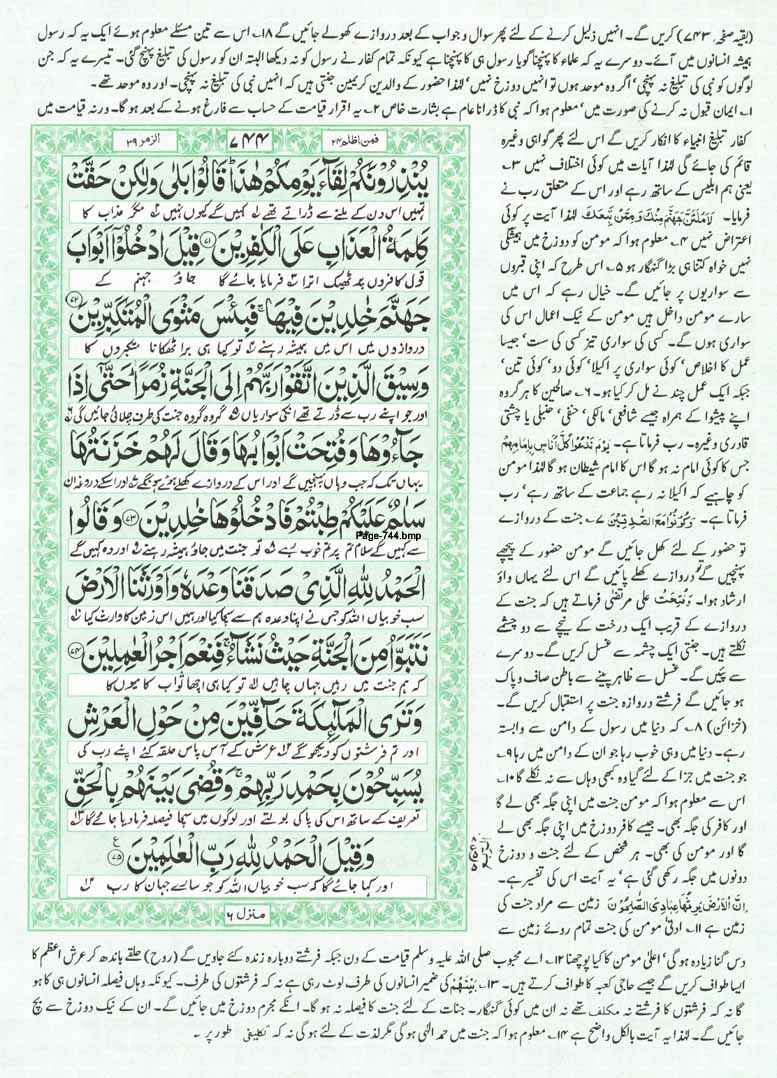 (بقیہ صفحہ ۷۴۳) کریں گے۔ انہیں ذلیل کرنے کے لئے پھر سوال و جواب کے بعد دروازے کھولے جائیں گے ۱۸۔ اس سے تین مسئلے معلوم ہوئے ایک یہ کہ رسول
ہمیشہ انسانوں میں آئے۔ دوسرے یہ کہ علماء کا پہنچنا گویا رسول ہی کا پہنچنا ہے کیونکہ تمام کفار نے رسول کو نہ دیکھا البتہ ان کو رسول کی تبلیغ پہنچ گئی۔ تیسرے یہ کہ جن
لوگوں کو نبی کی تبلیغ نہ پہنچی' اگر وہ موحد ہوں تو انہیں دوزخ نہیں' لہٰذا حضور کے والدین کریمین جنتی ہیں کہ انہیں نبی کی تبلیغ نہ پہنچی۔ اور وہ موحد تھے۔
۱۔ ایمان قبول نہ کرنے کی صورت میں' معلوم ہوا کہ نبی کا ڈرانا عام ہے بشارت خاص ۲۔ یہ اقرار قیامت کے حساب سے فارغ ہونے کے بعد ہو گا۔ ورنہ قیامت میں
کفار تبلیغ انبیاء کا انکار کریں گے اس لئے پھر گواہی وغیرہ
قائم کی جائے گی لہٰذا آیات میں کوئی اختلاف نہیں ۳۔
یعنی ہم ابلیس کے ساتھ رہے اور اس کے متعلق رب نے
فرمایا۔ لَاَمْلَئَنَّ جَهَنَّمَ مِنْكَ وَمِمَّنْ تَبِعَكَ لہٰذا آیت پر کوئی
اعتراض نہیں ۴۔ معلوم ہوا کہ مومن کو دوزخ میں ہمیشگی
نہیں خواہ کتنا ہی بڑا گنہگار ہو ۵۔ اس طرح کہ اپنی قبروں
سے سواریوں پر جائیں گے۔ خیال رہے کہ اس میں
سارے مومن داخل ہیں مومن کے نیک اعمال اس کی
سواری ہوں گے۔ کسی کی سواری تیز کسی کی ست' جیسا
عمل کا اخلاص' کوئی سواری پر اکیلا' کوئی دو' کوئی تین'
جبکہ ایک عمل چند نے مل کر کیا ہو۔ ۶۔ صالحین کا ہر گروہ
اپنے پیشوا کے ہمراہ جیسے شافعی' مالکی' حنفی' حنبلی یا چشتی
قادری وغیرہ۔ رب فرماتا ہے۔ یَوْمَ نَدْعُوْا كُلَّ اُنَاسٍ بِاِمَامِهِمْ
جس کا کوئی امام نہ ہو گا اس کا امام شیطان ہو گا لہٰذا مومن
کو چاہیے کہ اکیلا نہ رہے جماعت کے ساتھ رہے' رب
فرماتا ہے۔ وَكُوْنُوْا مَعَ الصّٰدِقِيْنَ ۷۔ جنت کے دروازے
تو حضور کے لئے کھل جائیں گے مومن حضور کے پیچھے
پہنچیں گے تو دروازے کھلے پائیں گے اس لئے یہاں واؤ
ارشاد ہوا۔ وَفُتِحَتْ علی مرتضیٰ فرماتے ہیں کہ جنت کے
دروازے کے قریب ایک درخت کے نیچے سے دو چشمے
نکلتے ہیں۔ جنتی ایک چشمہ سے غسل کریں گے۔ دوسرے
سے پئیں گے۔ غسل سے ظاہر پینے سے باطن صاف و پاک
ہو جائیں گے فرشتے دروازہ جنت پر استقبال کریں گے۔
(خزائن) ۸۔ کہ دنیا میں رسول کے دامن سے وابستہ
رہے۔ دنیا میں وہی خوب رہا جو ان کے دامن میں رہا ۹۔
جو جنت میں جزا کے لئے گیا وہ کبھی وہاں سے نہ نکلے گا ۱۰۔
اس سے معلوم ہوا کہ مومن جنت میں اپنی جگہ بھی لے گا
اور کافر کی جگہ بھی۔ جیسے کافر دوزخ میں اپنی جگہ بھی لے
گا اور مومن کی بھی۔ ہر شخص کے لئے جنت و دوزخ
دونوں میں جگہ رکھی گئی ہے' یہ آیت اس کی تفسیر ہے۔
اِنَّ الْاَرْضَ یَرِثُهَا عِبَادِیَ الصّٰلِحُوْنَ زمین سے مراد جنت کی
زمین ہے ۱۱۔ ادنیٰ مومن کی جنت تمام روئے زمین سے
الزمر ۳۹
۷۴۴
فمن اظلم ۲۴
يُنْذِرُوْنَكُمْ لِقَآءَ يَوْمِكُمْ هٰذَا قَالُوْا بَلٰى وَلٰكِنْ حَقَّتْ
تمہیں اس دن کے ملنے سے ڈراتے تھے کہیں گے کیوں نہیں مگر عذاب کا
كَلِمَةُ الْعَذَابِ عَلَى الْكٰفِرِيْنَ ۷۱ قِيْلَ ادْخُلُوْۤا اَبْوَابَ
قول کافروں پر ٹھیک اترا فرمایا جائے گا جاؤ جہنم کے
جَهَنَّمَ خٰلِدِيْنَ فِيْهَا فَبِئْسَ مَثْوَى الْمُتَكَبِّرِيْنَ ۷۲
دروازوں میں اس میں ہمیشہ رہنے تو کیا ہی برا ٹھکانا متکبروں کا
وَسِيْقَ الَّذِيْنَ اتَّقَوْا رَبَّهُمْ اِلَى الْجَنَّةِ زُمَرًا حَتّٰۤى اِذَا
اور جو اپنے رب سے ڈرتے تھے انکی سواریاں گروہ گروہ جنت کی طرف چلائی جائیں گی
جَآءُوْهَا وَفُتِحَتْ اَبْوَابُهَا وَقَالَ لَهُمْ خَزَنَتُهَا
یہاں تک کہ جب وہاں پہنچیں گے اور اس کے دروازے کھلے ہوئے ہونگے اور اسکے داروغہ ان
سَلٰمٌ عَلَيْكُمْ طِبْتُمْ فَادْخُلُوْهَا خٰلِدِيْنَ ۷۳ وَقَالُوا
Page-744.bmp
سے کہیں گے سلام تم پر تم خوب رہے تو جنت میں جاؤ ہمیشہ رہنے اور وہ کہیں گے
الْحَمْدُ لِلّٰهِ الَّذِيْ صَدَقَنَا وَعْدَهٗ وَاَوْرَثَنَا الْاَرْضَ
سب خوبیاں اللہ کو جس نے اپنا وعدہ ہم سے سچا کیا اور ہمیں اس زمین کا وارث کیا
نَتَبَوَّاُ مِنَ الْجَنَّةِ حَيْثُ نَشَآءُ فَنِعْمَ اَجْرُ الْعٰمِلِيْنَ ۷۴
کہ ہم جنت میں رہیں جہاں چاہیں تو کیا ہی اچھا ثواب کامیوں کا
وَتَرَى الْمَلٰٓئِكَةَ حَآفِّيْنَ مِنْ حَوْلِ الْعَرْشِ
اور تم فرشتوں کو دیکھو گے عرش کے آس پاس حلقہ کئے اپنے رب کی
يُسَبِّحُوْنَ بِحَمْدِ رَبِّهِمْ وَقُضِيَ بَيْنَهُمْ بِالْحَقِّ
تعریف کے ساتھ اس کی پاکی بولتے اور لوگوں میں سچا فیصلہ فرما دیا جائے گا
وَقِيْلَ الْحَمْدُ لِلّٰهِ رَبِّ الْعٰلَمِيْنَ ۷۵
اور کہا جائے گا کہ سب خوبیاں اللہ کو جو سارے جہان کا رب
منزل ۶
دس گنا زیادہ ہو گی' اعلیٰ مومن کا کیا پوچھنا ۱۲۔ اے محبوب صلی اللہ علیہ وسلم قیامت کے دن جبکہ فرشتے دوبارہ زندہ کئے جاویں گے (روح) حلقے باندھ کر عرش اعظم کا
ایسا طواف کریں گے جیسے حاجی کعبہ کا طواف کرتے ہیں۔ ۱۳۔ بَيْنَهُمْ کی ضمیر انسانوں کی طرف لوٹ رہی ہے نہ کہ فرشتوں کی طرف۔ کیونکہ وہاں فیصلہ انسانوں ہی کا ہو
گا نہ کہ فرشتوں کا فرشتے نہ مکلف تھے نہ ان میں کوئی گنہگار۔ جنات کے لئے جنت کا فیصلہ نہ ہو گا۔ انکے مجرم دوزخ میں جائیں گے۔ ان کے نیک دوزخ سے بچ
جائیں گے۔ لہٰذا یہ آیت بالکل واضح ہے ۱۴۔ معلوم ہوا کہ جنت میں حمد الٰہی ہو گی مگر لذت کے لئے ہو گی نہ کہ تکلیفی طور پر۔